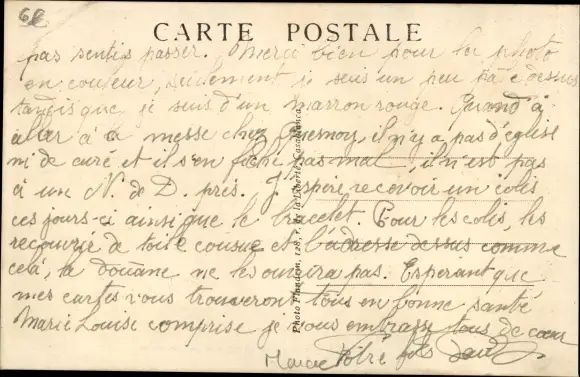 68
CARTE POSTALE
pas sentis passer. Merci bien pour la photo
en couleur, seulement je suis un peu dessus
tandis que je suis d'un marron rouge. Quand à
aller à la messe chez Guesnoy, il n'y a pas d'église
ni de curé et il s'en fiche pas mal, il n'est pas
à un N. de D. près. J'espère recevoir un colis
ces jours-ci ainsi que le bracelet. Pour les colis, les
recouvrir de toile cousue et l'adresse dessus comme
celà, la douane ne les ouvrira pas. Espérant que
mes cartes vous trouveront tous en bonne santé
Marie Louise comprise je vous embrasse tous de cœur
Votre fils
Maroc
Photo Flandrin, 128, r. de la Liberté Casablanca